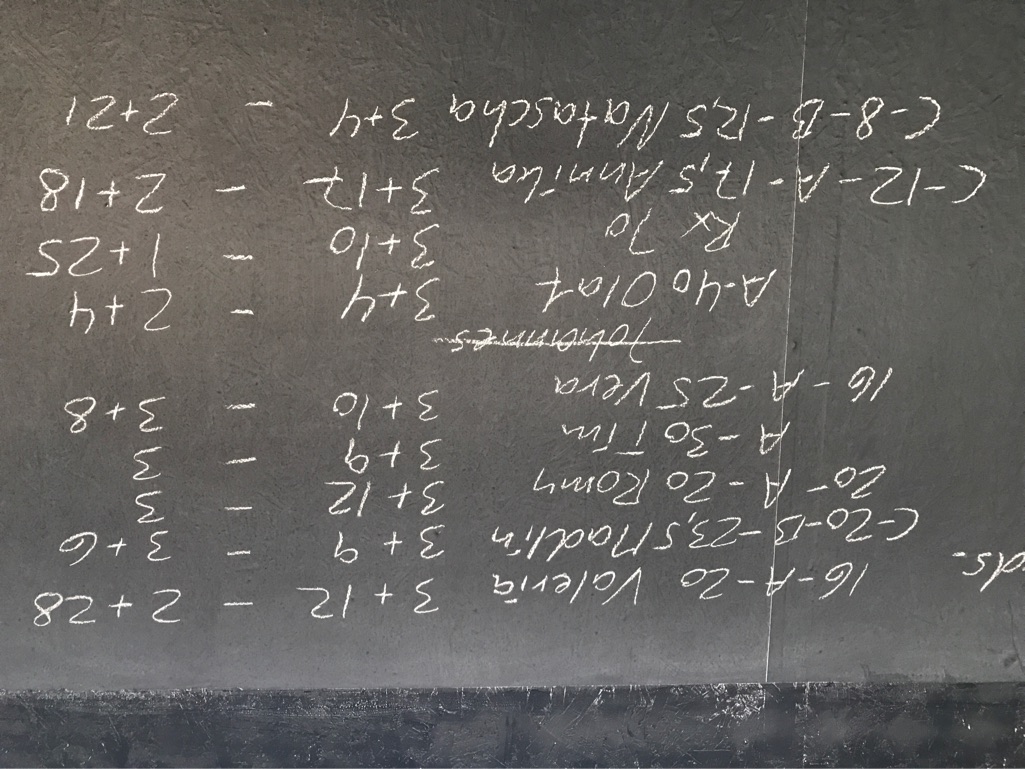 16-A-20 Valeria 3+12 - 2+28
ds.
C-20-B-23,5 Madlin 3+9 - 3+6
20-A-20 Romy 3+12 - 3
A-30 Tim 3+9 - 3
16-A-25 Vera 3+10 - 3+8
Johannes
A-40 Olaf 3+4 - 2+4
Rx 70 3+10 - 1+25
C-12-A-17,5 Annika 3+17 - 2+18
C-8-B-12,5 Natascha 3+4 - 2+21